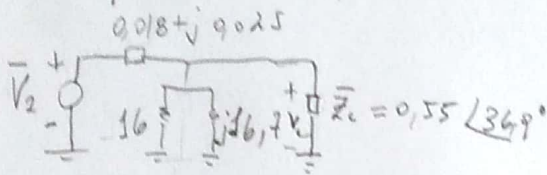 0,018+j 0,025
+
V̄₂
-
16
j16,7
+
V
-
Z̄c = 0,55 ∠34,9°